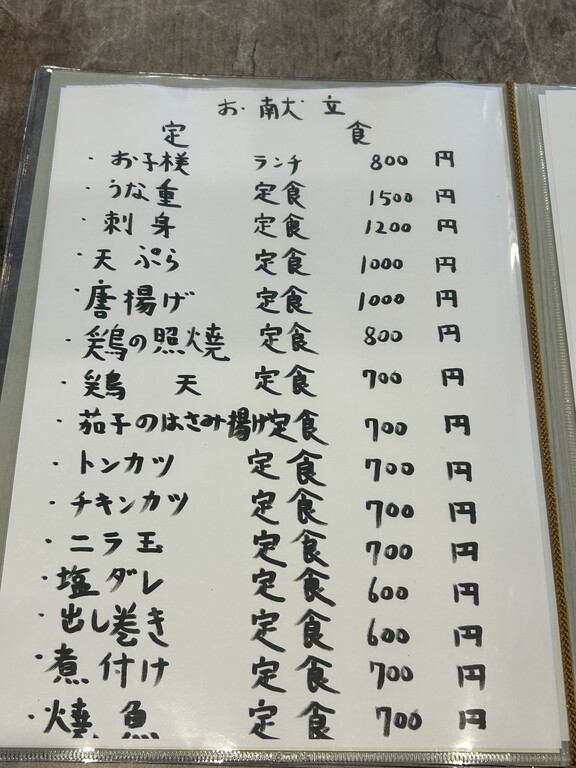 お献立
定食
・お子様 ランチ 800 円
・うな重 定食 1500 円
・刺身 定食 1200 円
・天ぷら 定食 1000 円
・唐揚げ 定食 1000 円
・鶏の照焼 定食 800 円
・鶏天 定食 700 円
・茄子のはさみ揚げ定食 700 円
・トンカツ 定食 700 円
・チキンカツ 定食 700 円
・ニラ玉 定食 700 円
・塩ダレ 定食 600 円
・出し巻き 定食 600 円
・煮付け 定食 700 円
・焼魚 定食 700 円